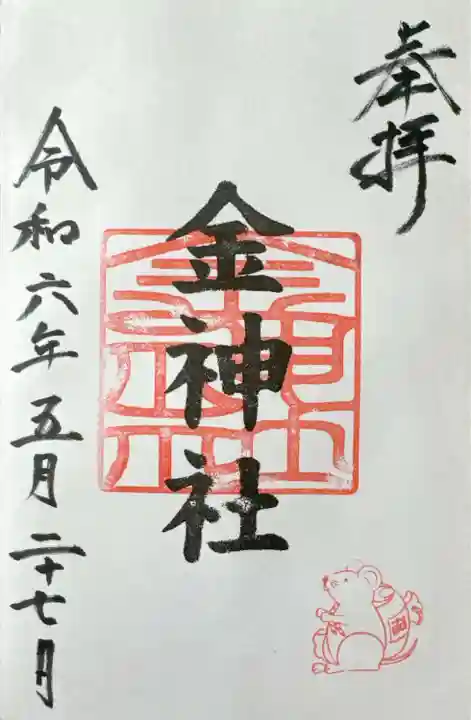 奉拝
金神社
令和六年五月二十七日